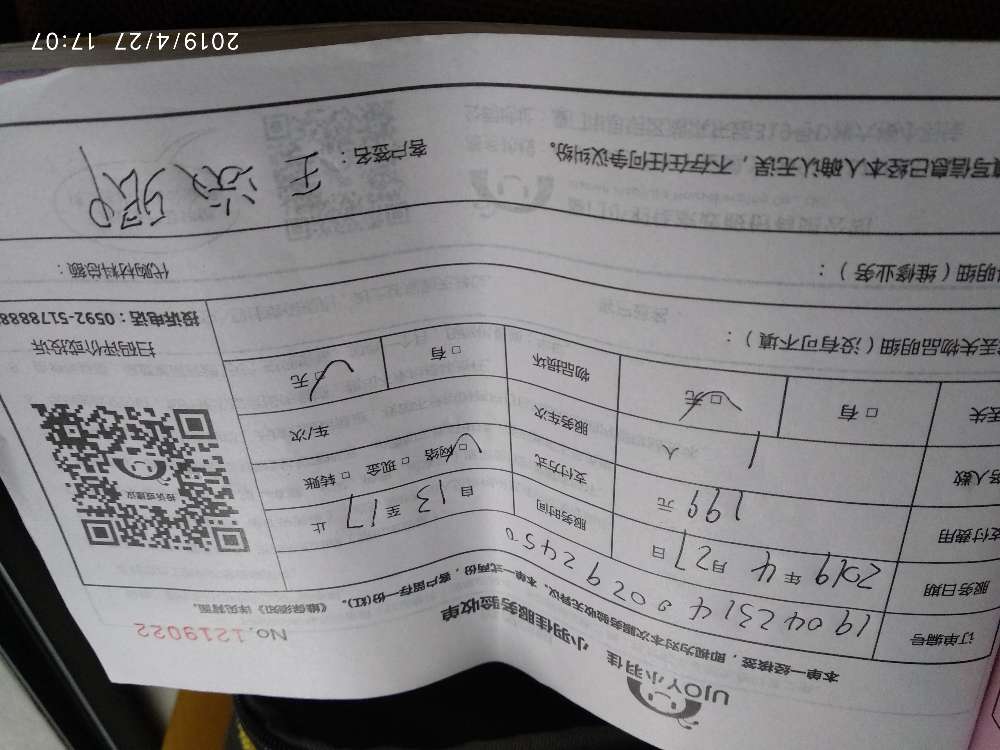 UJOY小羽佳
小羽佳 服务验收单
No.1219022
本单一经核签，即视为对本次服务验收无异议。本单一式两份，客户留存一份(红)。《维保须知》详见背面。
订单编号 1904231400292450
服务日期 2019 年 4 月 27 日 服务时间 自 13 至 17 止
支付费用 199 元 支付方式 □ 网络 □ 现金 □ 转账
人数 1 人 服务车次 车/次
丢失 □ 有 □ 无 物品损坏 □ 有 □ 无
投诉或建议
扫码评价或投诉
投诉电话：0592-5178888
丢失物品明细（没有可不填）：
明细（维修业务）： 代购材料总额：
写信息已经本人确认无误，不存在任何争议纠纷。 客户签名：王
2019/4/27 17:07